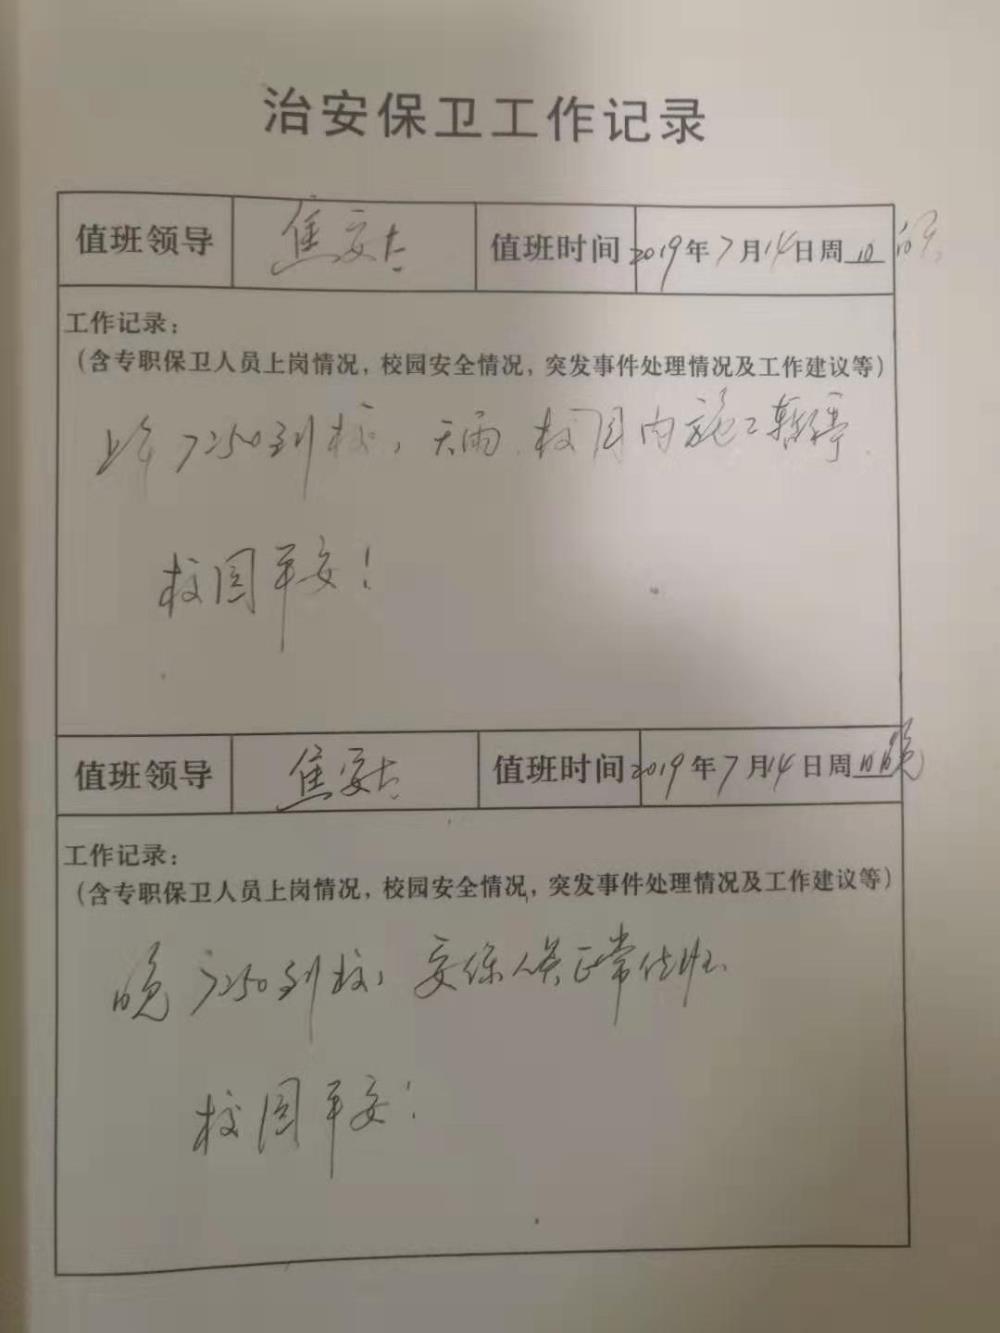 治安保卫工作记录
值班领导 焦安 值班时间 2019年7月14日周日
工作记录：
（含专职保卫人员上岗情况，校园安全情况，突发事件处理情况及工作建议等）
上午7:50到校，天雨，校园内施工暂停．
校园平安！
值班领导 焦安 值班时间 2019年7月14日周日晚
工作记录：
（含专职保卫人员上岗情况，校园安全情况，突发事件处理情况及工作建议等）
晚7:50到校，安保人员正常值班．
校园平安！